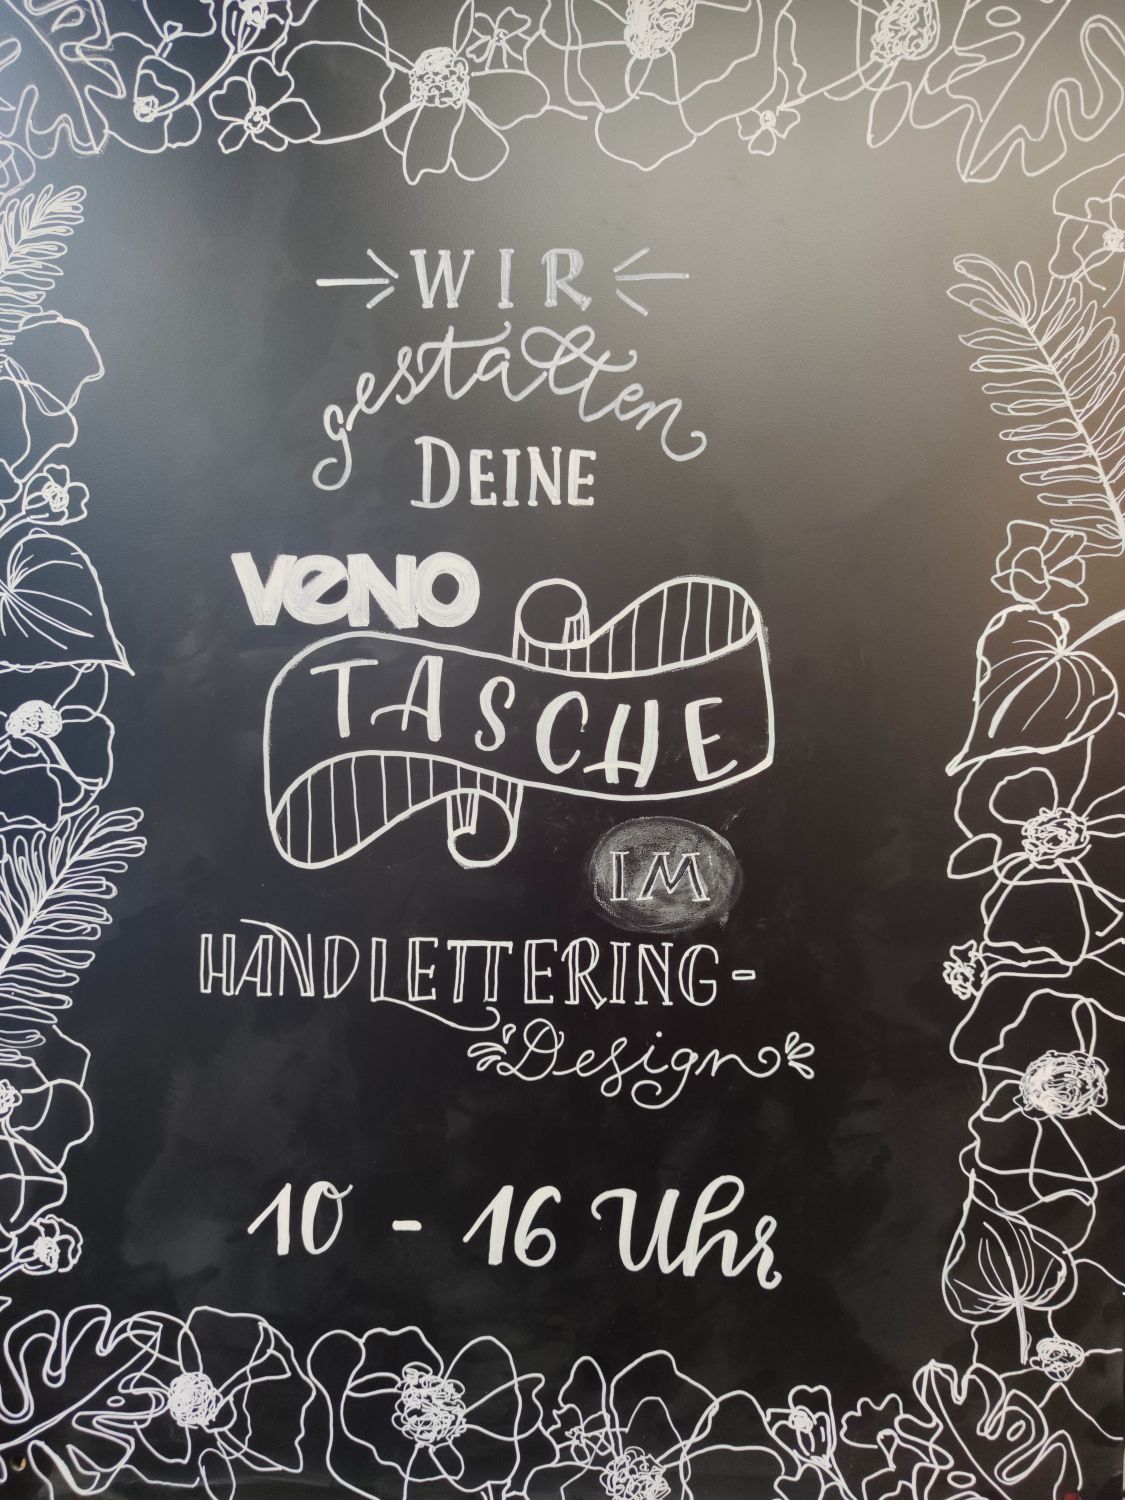 WIR
gestalten
DEINE
VENO
TASCHE
IM
HANDLETTERING-
Design
10 - 16 Uhr